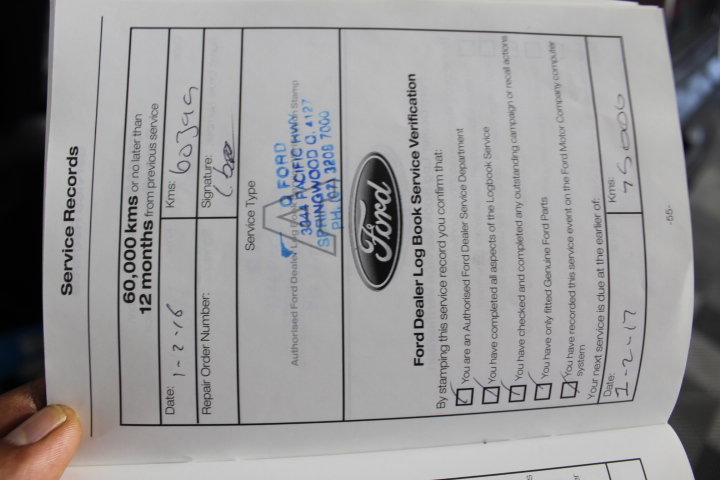 Service Records
60,000 kms or no later than
12 months from previous service
Date: 1-2-16 Kms: 60399
Repair Order Number: Signature:
Service Type
A
Q FORD
3044 PACIFIC HWY
SPRINGWOOD Q. 4127
PH. (07) 3208 7000
Authorised Ford Dealer Stamp
Ford
Ford Dealer Log Book Service Verification
By stamping this service record you confirm that:
You are an Authorised Ford Dealer Service Department
You have completed all aspects of the Logbook Service
You have checked and completed any outstanding campaign or recall actions
You have only fitted Genuine Ford Parts
You have recorded this service event on the Ford Motor Company computer
system
Your next service is due at the earlier of:
Date: 1-2-17 Kms: 75000
-55-